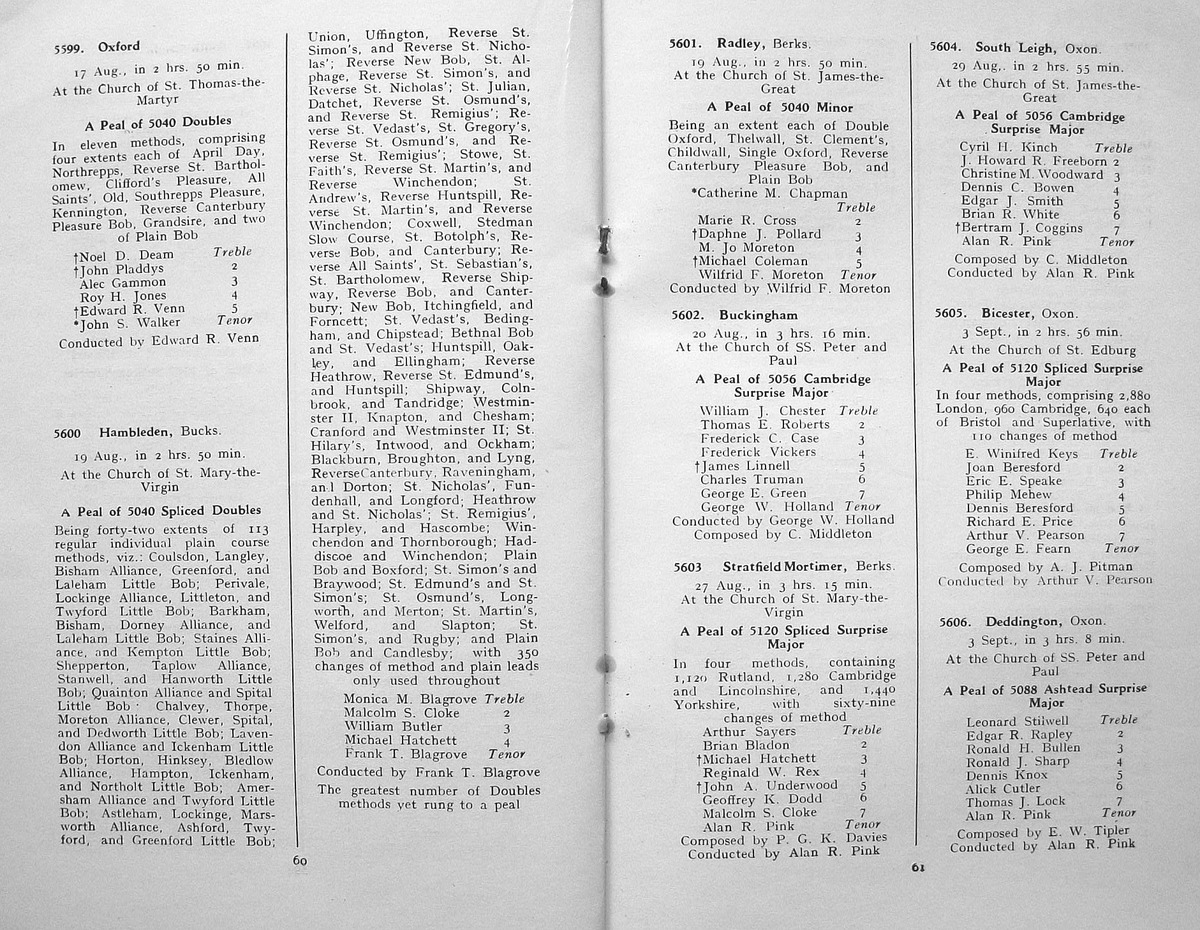 5599. Oxford
17 Aug., in 2 hrs. 50 min.
At the Church of St. Thomas-the-
Martyr
A Peal of 5040 Doubles
In eleven methods, comprising
four extents each of April Day,
Northrepps, Reverse St. Barthol-
omew, Clifford's Pleasure, All
Saints', Old, Southrepps Pleasure,
Kennington, Reverse Canterbury
Pleasure Bob, Grandsire, and two
of Plain Bob
†Noel D. Deam Treble
†John Pladdys 2
Alec Gammon 3
Roy H. Jones 4
†Edward R. Venn 5
*John S. Walker Tenor
Conducted by Edward R. Venn
5600 Hambleden, Bucks.
19 Aug., in 2 hrs. 50 min.
At the Church of St. Mary-the-
Virgin
A Peal of 5040 Spliced Doubles
Being forty-two extents of 113
regular individual plain course
methods, viz.: Coulsdon, Langley,
Bisham Alliance, Greenford, and
Laleham Little Bob; Perivale,
Lockinge Alliance, Littleton, and
Twyford Little Bob; Barkham,
Bisham, Dorney Alliance, and
Laleham Little Bob; Staines Alli-
ance, and Kempton Little Bob;
Shepperton, Taplow Alliance,
Stanwell, and Hanworth Little
Bob; Quainton Alliance and Spital
Little Bob · Chalvey, Thorpe,
Moreton Alliance, Clewer, Spital,
and Dedworth Little Bob; Laven-
don Alliance and Ickenham Little
Bob; Horton, Hinksey, Bledlow
Alliance, Hampton, Ickenham,
and Northolt Little Bob; Amer-
sham Alliance and Twyford Little
Bob; Astleham, Lockinge, Mars-
worth Alliance, Ashford, Twy-
ford, and Greenford Little Bob;
Union, Uffington, Reverse St.
Simon's, and Reverse St. Nicho-
las'; Reverse New Bob, St. Al-
phage, Reverse St. Simon's, and
Reverse St. Nicholas'; St. Julian,
Datchet, Reverse St. Osmund's,
and Reverse St. Remigius'; Re-
verse St. Vedast's, St. Gregory's,
Reverse St. Osmund's, and Re-
verse St. Remigius'; Stowe, St.
Faith's, Reverse St. Martin's, and
Reverse Winchendon; St.
Andrew's, Reverse Huntspill, Re-
verse St. Martin's, and Reverse
Winchendon; Coxwell, Stedman
Slow Course, St. Botolph's, Re-
verse Bob, and Canterbury; Re-
verse All Saints', St. Sebastian's,
St. Bartholomew, Reverse Ship-
way, Reverse Bob, and Canter-
bury; New Bob, Itchingfield, and
Forncett; St. Vedast's, Beding-
ham, and Chipstead; Bethnal Bob
and St. Vedast's; Huntspill, Oak-
ley, and Ellingham; Reverse
Heathrow, Reverse St. Edmund's,
and Huntspill; Shipway, Coln-
brook, and Tandridge; Westmin-
ster II, Knapton, and Chesham;
Cranford and Westminster II; St.
Hilary's, Intwood, and Ockham;
Blackburn, Broughton, and Lyng,
ReverseCanterbury, Raveningham,
and Dorton; St. Nicholas', Fun-
denhall, and Longford; Heathrow
and St. Nicholas'; St. Remigius',
Harpley, and Hascombe; Win-
chendon and Thornborough; Had-
discoe and Winchendon; Plain
Bob and Boxford; St. Simon's and
Braywood; St. Edmund's and St.
Simon's; St. Osmund's, Long-
worth, and Merton; St. Martin's,
Welford, and Slapton; St.
Simon's, and Rugby; and Plain
Bob and Candlesby; with 350
changes of method and plain leads
only used throughout
Monica M. Blagrove Treble
Malcolm S. Cloke 2
William Butler 3
Michael Hatchett 4
Frank T. Blagrove Tenor
Conducted by Frank T. Blagrove
The greatest number of Doubles
methods yet rung to a peal
60
5601. Radley, Berks.
19 Aug., in 2 hrs. 50 min.
At the Church of St. James-the-
Great
A Peal of 5040 Minor
Being an extent each of Double
Oxford, Thelwall, St. Clement's,
Childwall, Single Oxford, Reverse
Canterbury Pleasure Bob, and
Plain Bob
*Catherine M. Chapman
Treble
Marie R. Cross 2
†Daphne J. Pollard 3
M. Jo Moreton 4
†Michael Coleman 5
Wilfrid F. Moreton Tenor
Conducted by Wilfrid F. Moreton
5602. Buckingham
20 Aug., in 3 hrs. 16 min.
At the Church of SS. Peter and
Paul
A Peal of 5056 Cambridge
Surprise Major
William J. Chester Treble
Thomas E. Roberts 2
Frederick C. Case 3
Frederick Vickers 4
†James Linnell 5
Charles Truman 6
George E. Green 7
George W. Holland Tenor
Conducted by George W. Holland
Composed by C. Middleton
5603 Stratfield Mortimer, Berks.
27 Aug., in 3 hrs. 15 min.
At the Church of St. Mary-the-
Virgin
A Peal of 5120 Spliced Surprise
Major
In four methods, containing
1,120 Rutland, 1,280 Cambridge
and Lincolnshire, and 1,440
Yorkshire, with sixty-nine
changes of method
Arthur Sayers Treble
Brian Bladon 2
†Michael Hatchett 3
Reginald W. Rex 4
†John A. Underwood 5
Geoffrey K. Dodd 6
Malcolm S. Cloke 7
Alan R. Pink Tenor
Composed by P. G. K. Davies
Conducted by Alan R. Pink
5604. South Leigh, Oxon.
29 Aug,. in 2 hrs. 55 min.
At the Church of St. James-the-
Great
A Peal of 5056 Cambridge
Surprise Major
Cyril H. Kinch Treble
J. Howard R. Freeborn 2
Christine M. Woodward 3
Dennis C. Bowen 4
Edgar J. Smith 5
Brian R. White 6
†Bertram J. Coggins 7
Alan R. Pink Tenor
Composed by C. Middleton
Conducted by Alan R. Pink
5605. Bicester, Oxon.
3 Sept., in 2 hrs. 56 min.
At the Church of St. Edburg
A Peal of 5120 Spliced Surprise
Major
In four methods, comprising 2,880
London, 960 Cambridge, 640 each
of Bristol and Superlative, with
110 changes of method
E. Winifred Keys Treble
Joan Beresford 2
Eric E. Speake 3
Philip Mehew 4
Dennis Beresford 5
Richard E. Price 6
Arthur V. Pearson 7
George E. Fearn Tenor
Composed by A. J. Pitman
Conducted by Arthur V. Pearson
5606. Deddington, Oxon.
3 Sept., in 3 hrs. 8 min.
At the Church of SS. Peter and
Paul
A Peal of 5088 Ashtead Surprise
Major
Leonard Stilwell Treble
Edgar R. Rapley 2
Ronald H. Bullen 3
Ronald J. Sharp 4
Dennis Knox 5
Alick Cutler 6
Thomas J. Lock 7
Alan R. Pink Tenor
Composed by E. W. Tipler
Conducted by Alan R. Pink
61